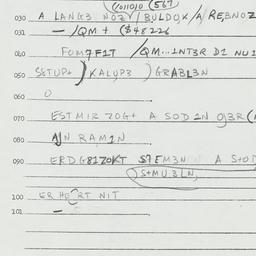 (1011010 (567)
030 A LANG3 NOZY / BULDOX / A REBNOZ
031 — /QM + ($48226
FOM7F1T /QM...1NT3R D1 NU1
050 SSTUP2 ) KALUP3 ) GRABL3N
060 O
070 ESTMIR ZOG+ A SOD 1N OJ3R (
080 A/N RAM1N
090 ERDG81ZOKT S7EM3N A S+OD
S+MU3LN,
100 ER HERT NIT
101 —